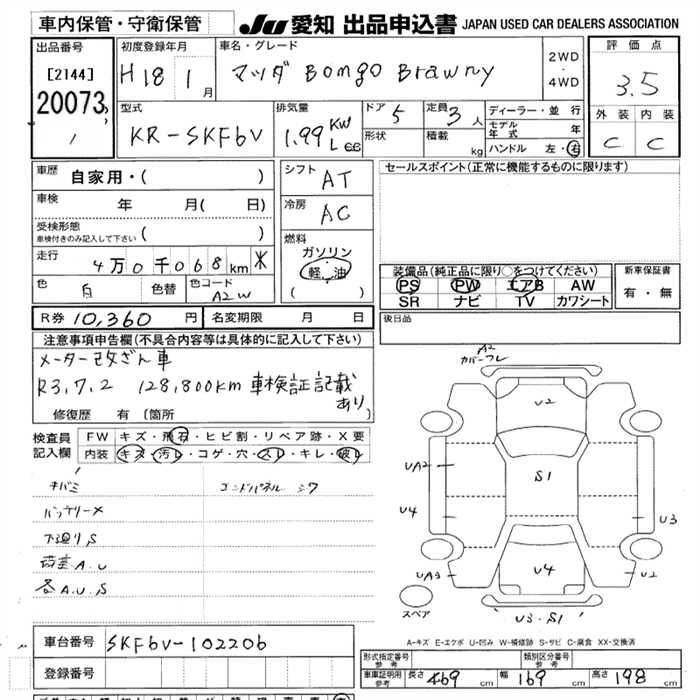 車内保管・守衛保管
JU 愛知 出品申込書 JAPAN USED CAR DEALERS ASSOCIATION
出品番号
[2144]
20073
初度登録年月
H18 1 月
車名・グレード
マツダ Bongo Brawny
2WD
・
4WD
評価点
3.5
型式
KR-SKF6V
排気量
1.99 KW
L cc
ドア 5
形状
定員 3 人
積載 kg
ディーラー・並行
モデル年式 年
ハンドル 左・右
外装 内装
C C
車歴 自家用・( )
車検 年 月( 日)
受検形態
車検付きのみ記入して下さい ( )
走行 4万0千068km ※
色 白 色替 色コード A2W
シフト AT
冷房 AC
燃料
ガソリン
軽・油
( )
セールスポイント(正常に機能するものに限ります)
装備品(純正品に限り○をつけてください)
PS PW エアB AW
SR ナビ TV カワシート
新車保証書
有・無
R券 10,360 円 名変期限 月 日
後日品
注意事項申告欄(不具合内容等は具体的に記入して下さい)
メーター改ざん車
R3.7.2 128,800km 車検証記載
あり
修復歴 有 〔箇所 〕
検査員
記入欄
FW キズ・飛石・ヒビ割・リペア跡・X要
内装 キズ・汚レ・コゲ・穴・スレ・キレ・破レ
キバミ
バッテリーメ
下廻りS
荷室A.U
各A.U.S
A2
カバーフレ
U2
UA2
S1
U4
U3
UA3
U4
U2
スペア
U3・S1
A-キズ E-エクボ U-凹み W-補修跡 S-サビ C-腐食 XX-交換済
車台番号 SKF6V-102206
登録番号
形式指定番号
参考
類別区分番号
参考
車庫証明用
参考
長さ 469 cm 幅 169 cm 高さ 198 cm